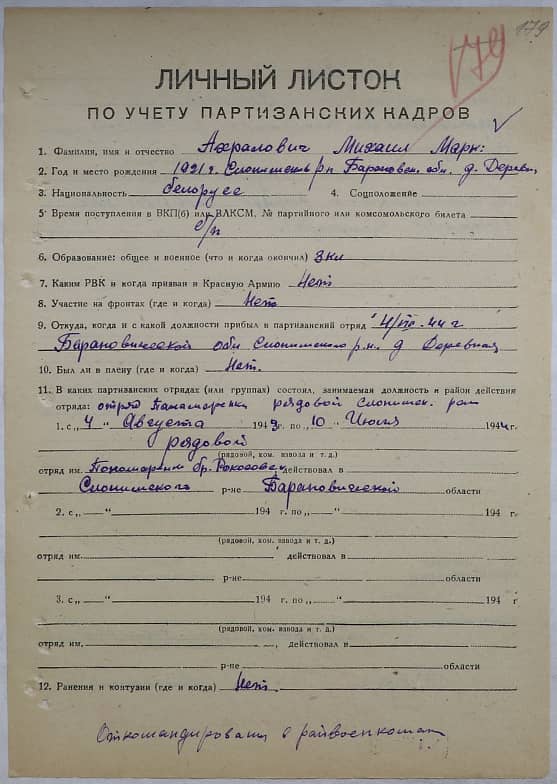 179
179
ЛИЧНЫЙ ЛИСТОК
ПО УЧЕТУ ПАРТИЗАНСКИХ КАДРОВ
1. Фамилия, имя и отчество Ахралович Михаил Марк:
2. Год и место рождения 1921 г. Слонимск р/н Барановск. обл. д. Деревн
3. Национальность белорусс 4. Соцположение
5. Время поступления в ВКП(б) или ВЛКСМ, № партийного или комсомольского билета
б/п
6. Образование: общее и военное (что и когда окончил) 3 кл
7. Каким РВК и когда призван в Красную Армию Нет
8. Участие на фронтах (где и когда) Нет
9. Откуда, когда и с какой должности прибыл в партизанский отряд 44 г
Барановической обл Слонимского р.н. д Деревная
10. Был ли в плену (где и когда) Нет.
11. В каких партизанских отрядах (или группах) состоял, занимаемая должность и район действия
отряда: отряд Панамаренки рядовой Слонимск. рай
1. с „4 " Августа 1943 г. по „10 " Июля 1944 г.
рядовой
(рядовой, ком. взвода и т. д.)
отряд им. Пономаренки бр. Рокосовск действовал в
Слонимского р-не Барановической области
2. с „ " 194 г. по „ " 194 г.
(рядовой, ком. взвода и т. д.)
отряд им. действовал в
р-не области
3. с „ " 194 г. по „ " 194 г
(рядовой, ком. взвода и т. д.)
отряд им. , действовал в
р-не области
12. Ранения и контузии (где и когда) Нет.
Откомандирован в райвоенкомат